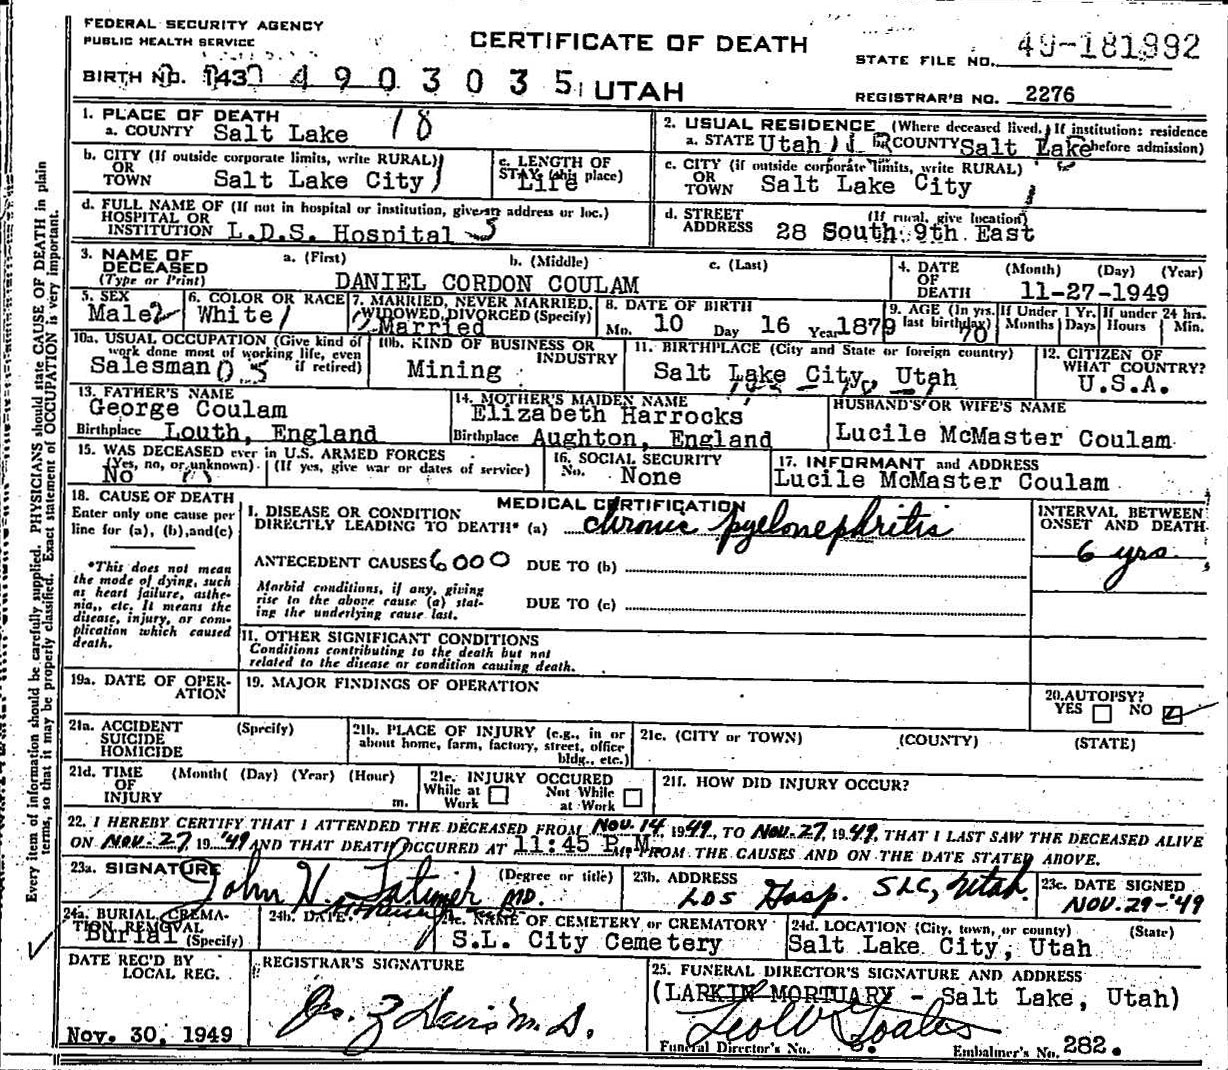 FEDERAL SECURITY AGENCY
PUBLIC HEALTH SERVICE
CERTIFICATE OF DEATH
STATE FILE NO. 49-181992
BIRTH NO. 143 4 9 0 3 0 3 5 UTAH
REGISTRAR'S NO. 2276
1. PLACE OF DEATH
a. COUNTY Salt Lake 18
2. USUAL RESIDENCE (Where deceased lived. If institution: residence before admission)
a. STATE Utah COUNTY Salt Lake
b. CITY (If outside corporate limits, write RURAL)
OR TOWN Salt Lake City
c. LENGTH OF STAY (in this place) Life
c. CITY (if outside corporate limits, write RURAL)
OR TOWN Salt Lake City
d. FULL NAME OF (If not in hospital or institution, give address or loc.)
HOSPITAL OR
INSTITUTION L.D.S. Hospital 5
d. STREET ADDRESS (If rural, give location)
28 South 9th East
3. NAME OF DECEASED (Type or Print)
a. (First) b. (Middle) c. (Last)
DANIEL CORDON COULAM
4. DATE OF DEATH (Month) (Day) (Year)
11-27-1949
5. SEX
Male 2
6. COLOR OR RACE
White 1
7. MARRIED, NEVER MARRIED, WIDOWED, DIVORCED (Specify)
2 Married
8. DATE OF BIRTH
Mo. 10 Day 16 Year 1879
9. AGE (In yrs. last birthday) 70
If Under 1 Yr. Months Days
If under 24 hrs. Hours Min.
10a. USUAL OCCUPATION (Give kind of work done most of working life, even if retired)
Salesman 0
10b. KIND OF BUSINESS OR INDUSTRY
Mining
11. BIRTHPLACE (City and State or foreign country)
Salt Lake City, Utah
12. CITIZEN OF WHAT COUNTRY?
U.S.A.
13. FATHER'S NAME
George Coulam
Birthplace Louth, England
14. MOTHER'S MAIDEN NAME
Elizabeth Harrocks
Birthplace Aughton, England
HUSBAND'S OR WIFE'S NAME
Lucile McMaster Coulam
15. WAS DECEASED ever in U.S. ARMED FORCES
(Yes, no, or unknown) (If yes, give war or dates of service)
No
16. SOCIAL SECURITY
No. None
17. INFORMANT and ADDRESS
Lucile McMaster Coulam
18. CAUSE OF DEATH
Enter only one cause per
line for (a), (b), and (c)
*This does not mean
the mode of dying, such
as heart failure, asthe-
nia,, etc. It means the
disease, injury, or com-
plication which caused
death.
MEDICAL CERTIFICATION
I. DISEASE OR CONDITION
DIRECTLY LEADING TO DEATH* (a) chronic pyelonephritis
INTERVAL BETWEEN
ONSET AND DEATH
6 yrs.
ANTECEDENT CAUSES 6000 DUE TO (b)
Morbid conditions, if any, giving
rise to the above cause (a) stat-
ing the underlying cause last.
DUE TO (c)
II. OTHER SIGNIFICANT CONDITIONS
Conditions contributing to the death but not
related to the disease or condition causing death.
19a. DATE OF OPER-
ATION
19. MAJOR FINDINGS OF OPERATION
20. AUTOPSY?
YES NO
21a. ACCIDENT (Specify)
SUICIDE
HOMICIDE
21b. PLACE OF INJURY (e.g., in or
about home, farm, factory, street, office
bldg., etc.)
21c. (CITY or TOWN) (COUNTY) (STATE)
21d. TIME (Month( (Day) (Year) (Hour)
OF
INJURY m.
21e. INJURY OCCURED
While at Work Not While at Work
21f. HOW DID INJURY OCCUR?
22. I HEREBY CERTIFY THAT I ATTENDED THE DECEASED FROM NOV. 14, 1949, TO NOV. 27, 1949, THAT I LAST SAW THE DECEASED ALIVE
ON NOV. 27, 19 '49 AND THAT DEATH OCCURED AT 11:45 P.M. M. FROM THE CAUSES AND ON THE DATE STATED ABOVE.
23a. SIGNATURE (Degree or title)
John H. Latimer M.D.
23b. ADDRESS
LDS Hosp. SLC, Utah
23c. DATE SIGNED
NOV. 29-'49
24a. BURIAL, CREMA-
TION REMOVAL (Specify)
Burial
24b. DATE
24c. NAME OF CEMETERY or CREMATORY
S.L. City Cemetery
24d. LOCATION (City, town, or county) (State)
Salt Lake City, Utah
DATE REC'D BY
LOCAL REG.
Nov. 30, 1949
REGISTRAR'S SIGNATURE
25. FUNERAL DIRECTOR'S SIGNATURE AND ADDRESS
(LARKIN MORTUARY - Salt Lake, Utah)
Funeral Director's No. Embalmer's No. 282.
Every item of information should be carefully supplied. PHYSICIANS should state CAUSE OF DEATH in plain
terms, so that it may be properly classified. Exact statement of OCCUPATION is very important.